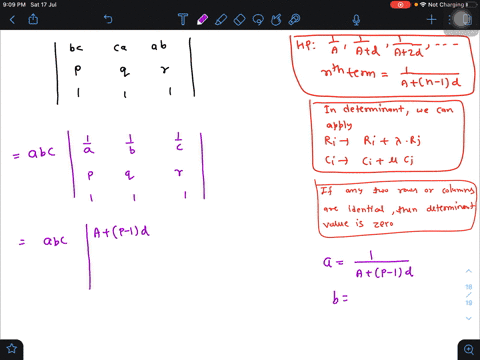 9:09 PM Sat 17 Jul
Not Charging
| bc ca ab |
| p q r |
| 1 1 1 |
= abc | 1/a 1/b 1/c |
| p q r |
| 1 1 1 |
= abc | A+(P-1)d
HP: 1/A, 1/A+d, 1/A+2d, ....
nth term = 1/A+(n-1)d
In determinant, we can
apply
Ri → Ri + λ.Rj
Ci → Ci + μ Cj
If any two rows or columns
are Idential, then determinant
value is zero
a = 1/A+(P-1)d
b =
18
18